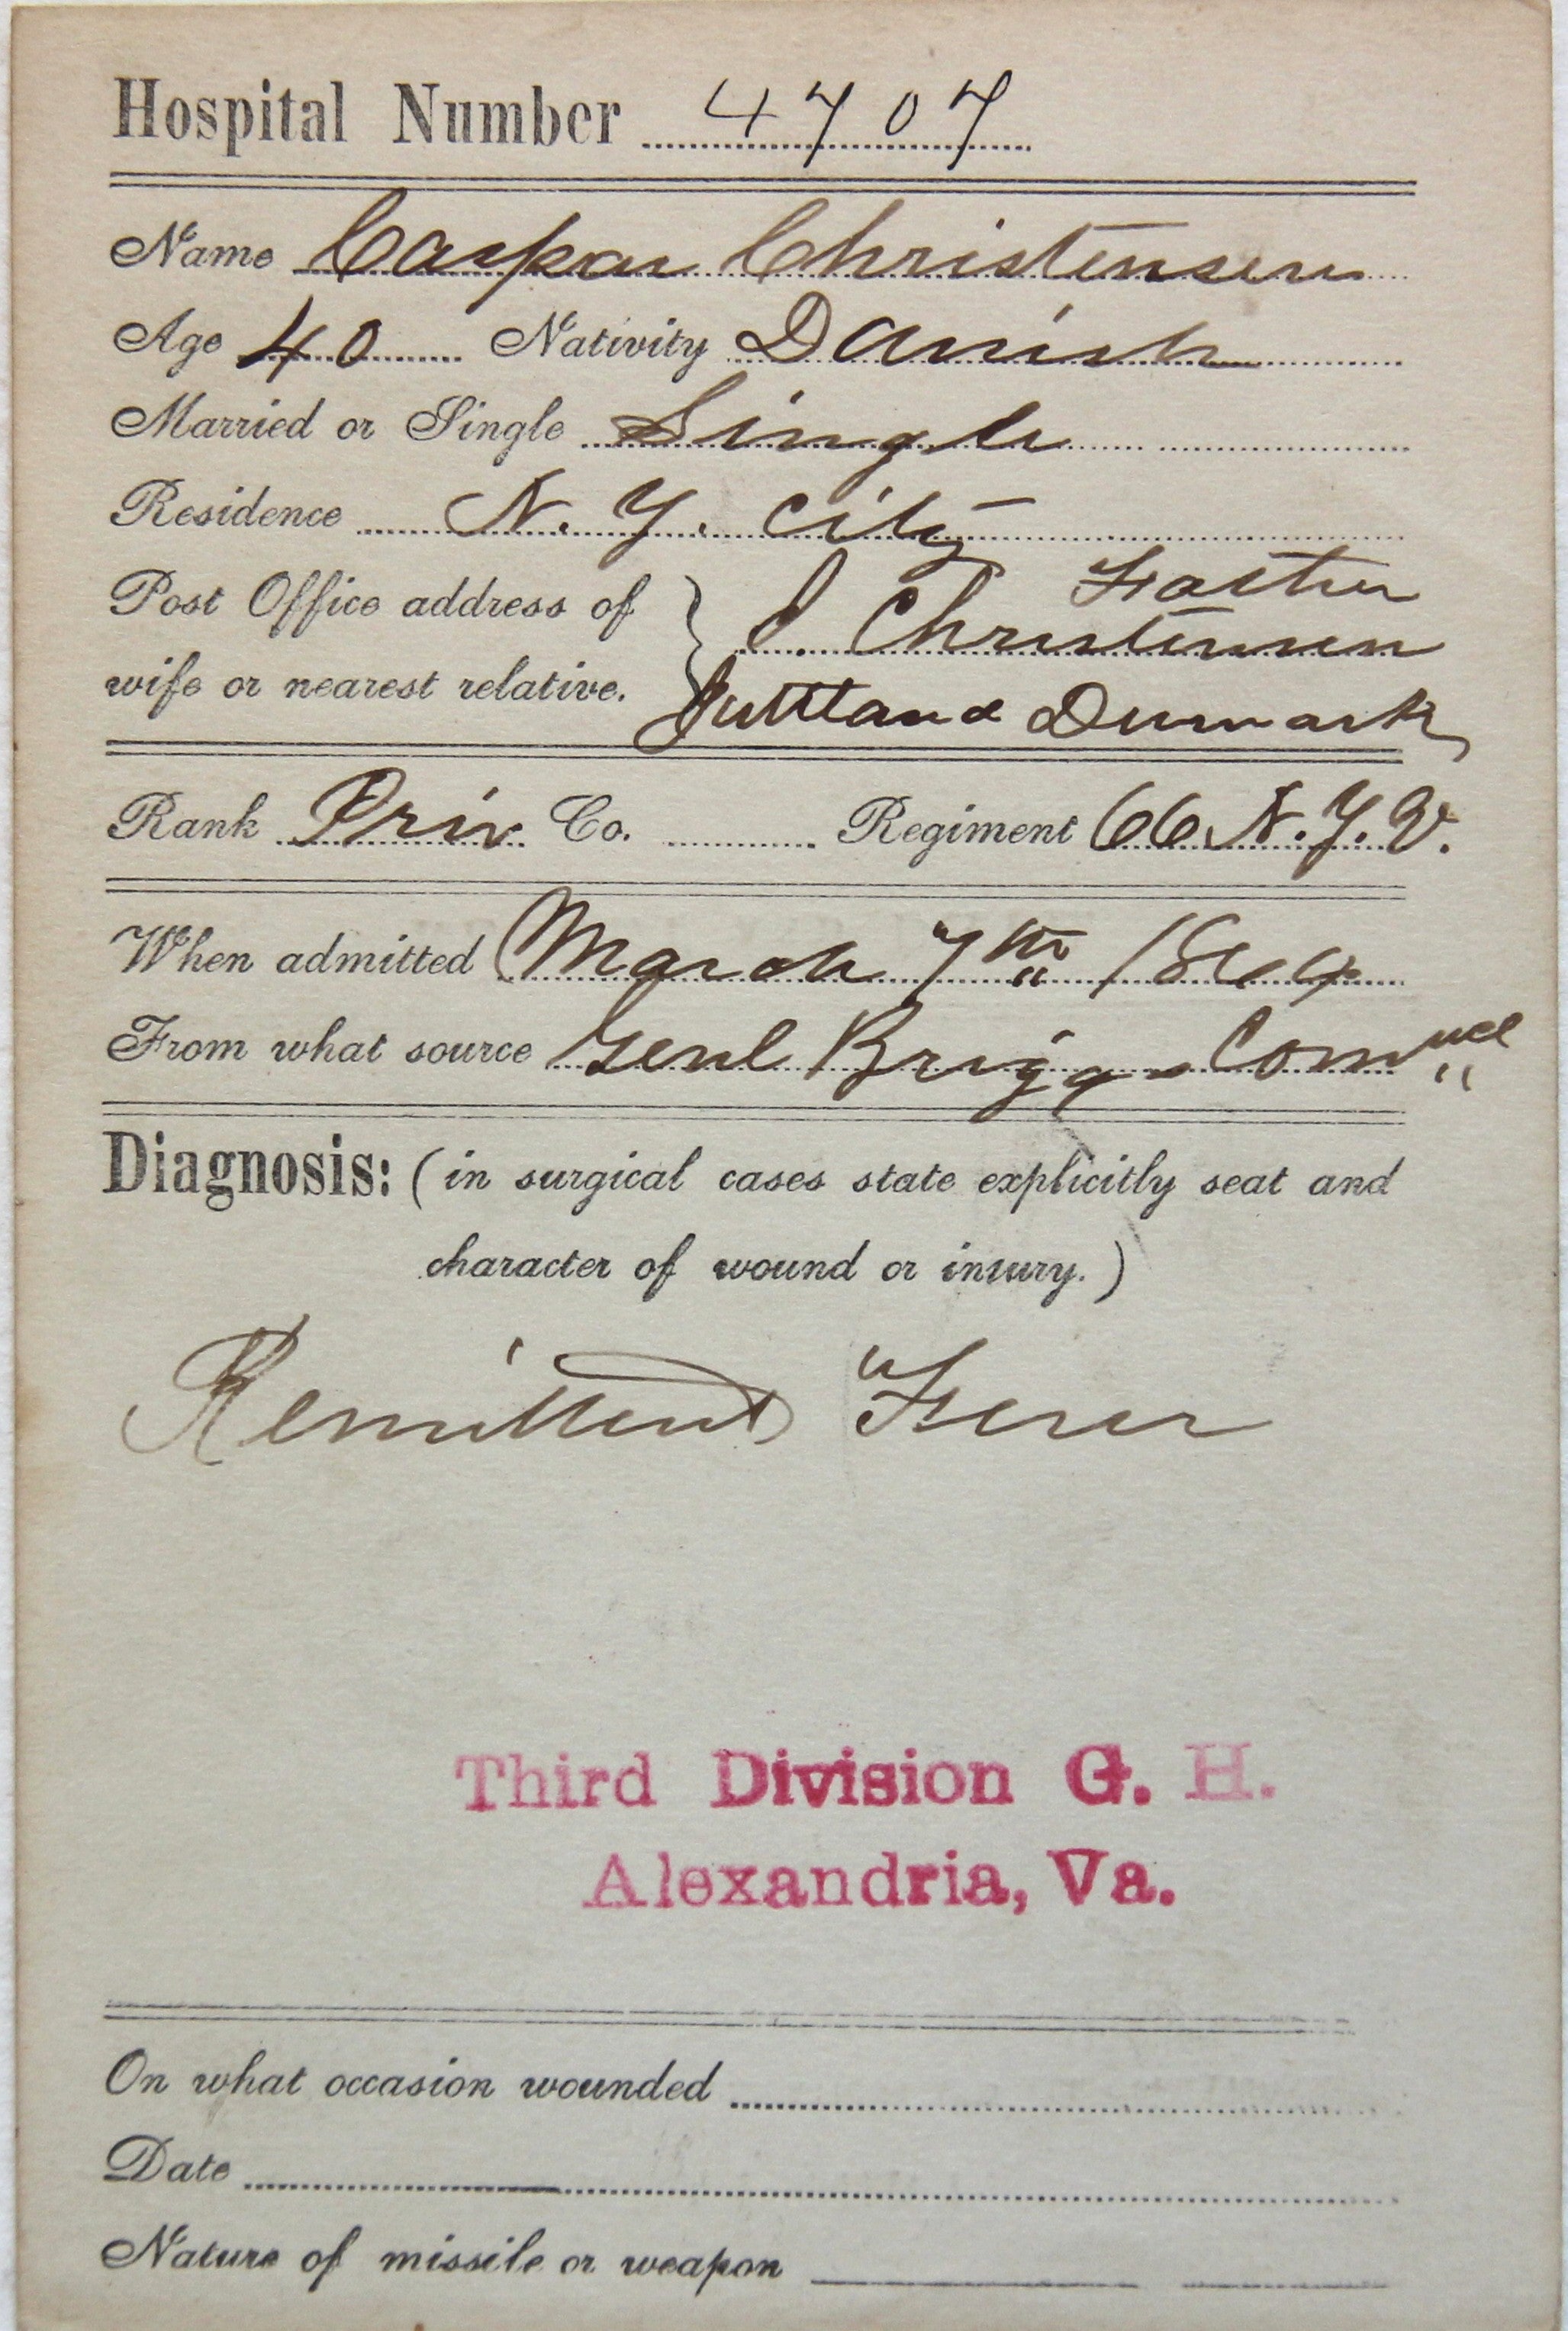 Hospital Number 4707
Name Caspar Christensen
Age 40 Nativity Danish
Married or Single Single
Residence N. Y. City
Post Office address of
wife or nearest relative.
Father
Christensen
Juttland Denmark
Rank Priv Co. Regiment 66 N. Y. V.
When admitted March 7th 1864
From what source Genl Briggs Comnd
Diagnosis: (in surgical cases state explicitly seat and
character of wound or injury.)
Remittent Fever
Third Division G. H.
Alexandria, Va.
On what occasion wounded
Date
Nature of missile or weapon